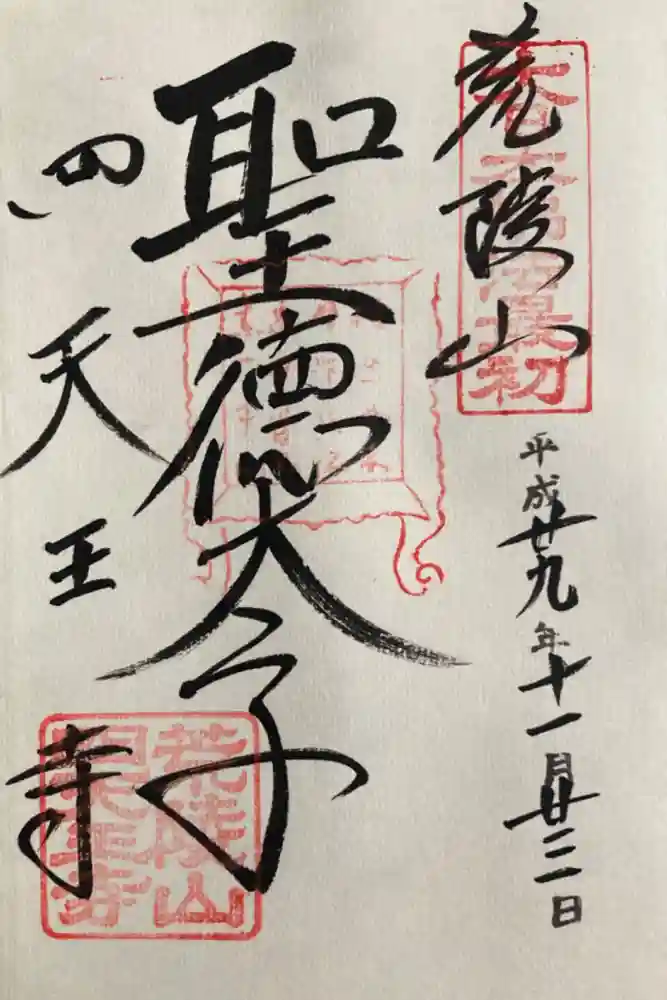 荒陵山
大日本仏法最初
平成廿九年十一月廿三日
聖徳太子
四天王寺
荒陵山
四天王寺